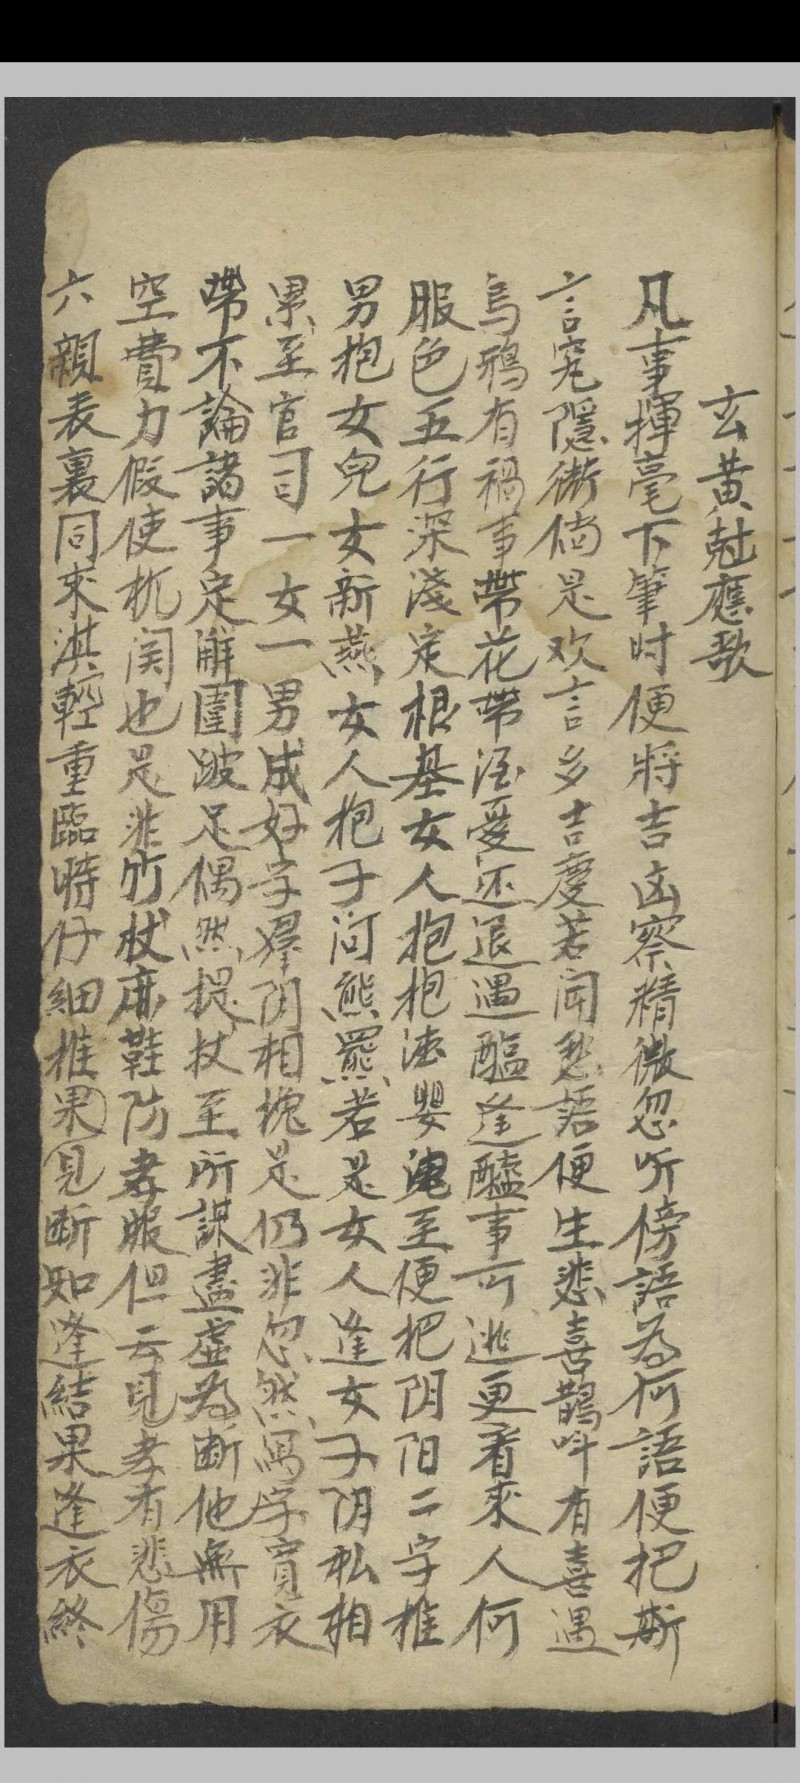 玄黄尅應歌
凡事揮毫下筆时便將吉凶察精微忽听傍語為何語便把斯
言究隱微倘是欢言多吉慶若闻愁語便生悲喜鵲呌有喜遇
烏鴉有禍事帶花帶酒憂还退遇醞逢醯事可逃更看來人何
服色五行深淺定根基女人抱抱嬰至便把阴阳二字推
男抱女兒女新燕女人抱子问熊羆若是女人逢女子阴私相
累至官司一女一男成好字群阴相挽是仍非忽然寫字寬衣
帶不論諸事定解圍跛足偶然提杖至所謀盡虛為断他無用
空費力假使机関也是非竹杖麻鞋防孝服但云見孝有悲傷
六親表裏同來淇輕重臨時仔細推果見断知逢結果逢衣終